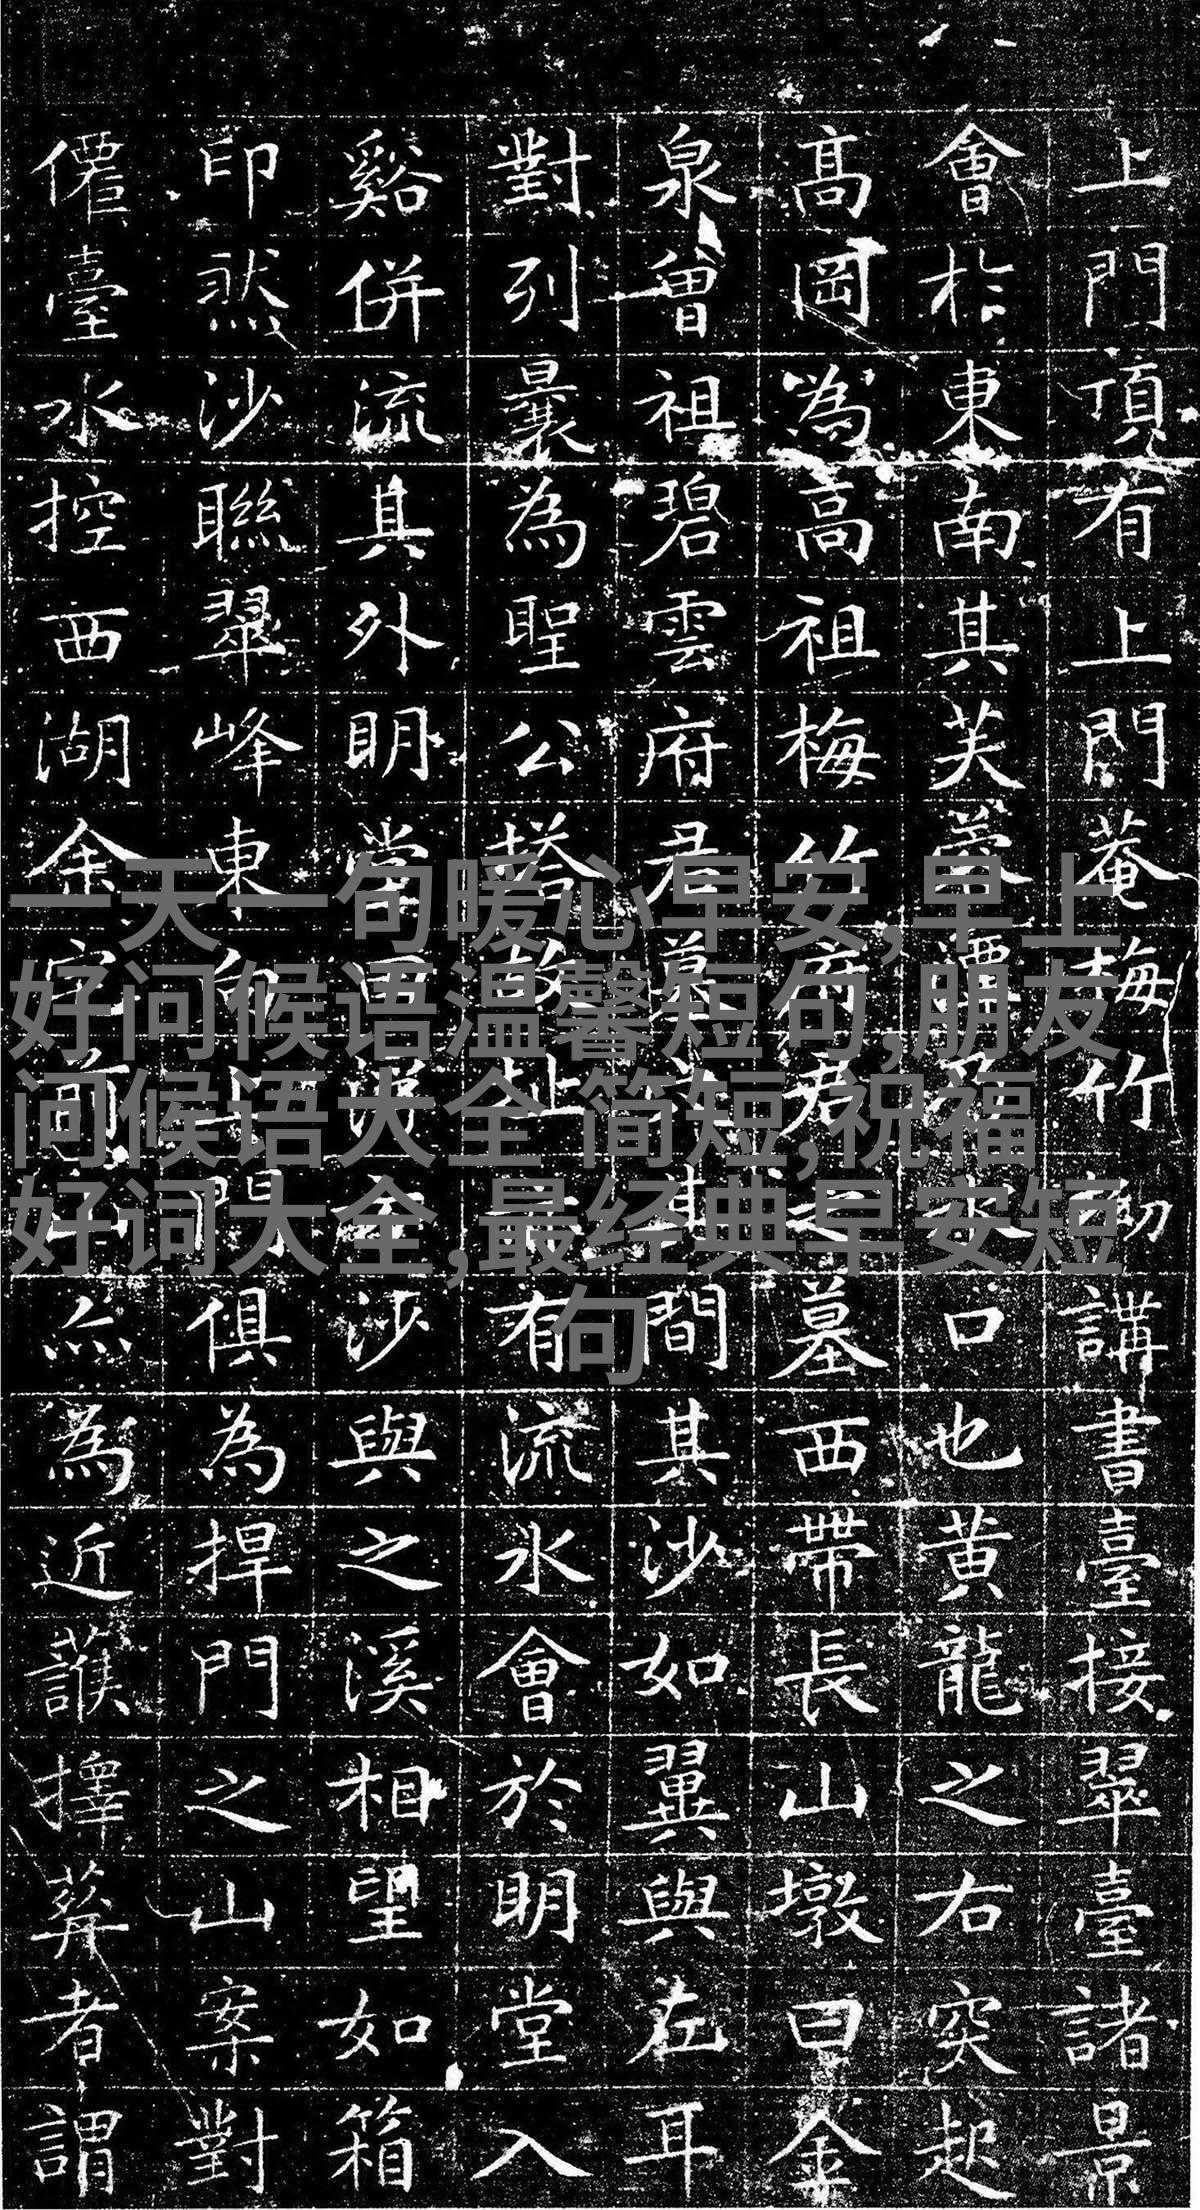 上門頂有上門菴梅竹講書臺接翠臺諸景
會於東南其芙蓉潭水口也黃龍之右突起
高岡為高祖梅竹府君之墓西帶長山墩曰金
泉曾祖碧雲府君墓其間其沙如翼與左耳
對列曩為聖公塔故址有流水會於明堂入
谿併流其外明堂沙與之溪相望如箱
印然沙聯翠峰東向上門俱為捍門之山案對
僊臺水控西湖余宅前亦為近護擇葬者謂
一天一句暖心早安,早上
好问候语温馨短句,朋友
问候语大全 简短,祝福
好词大全,最经典早安短
句